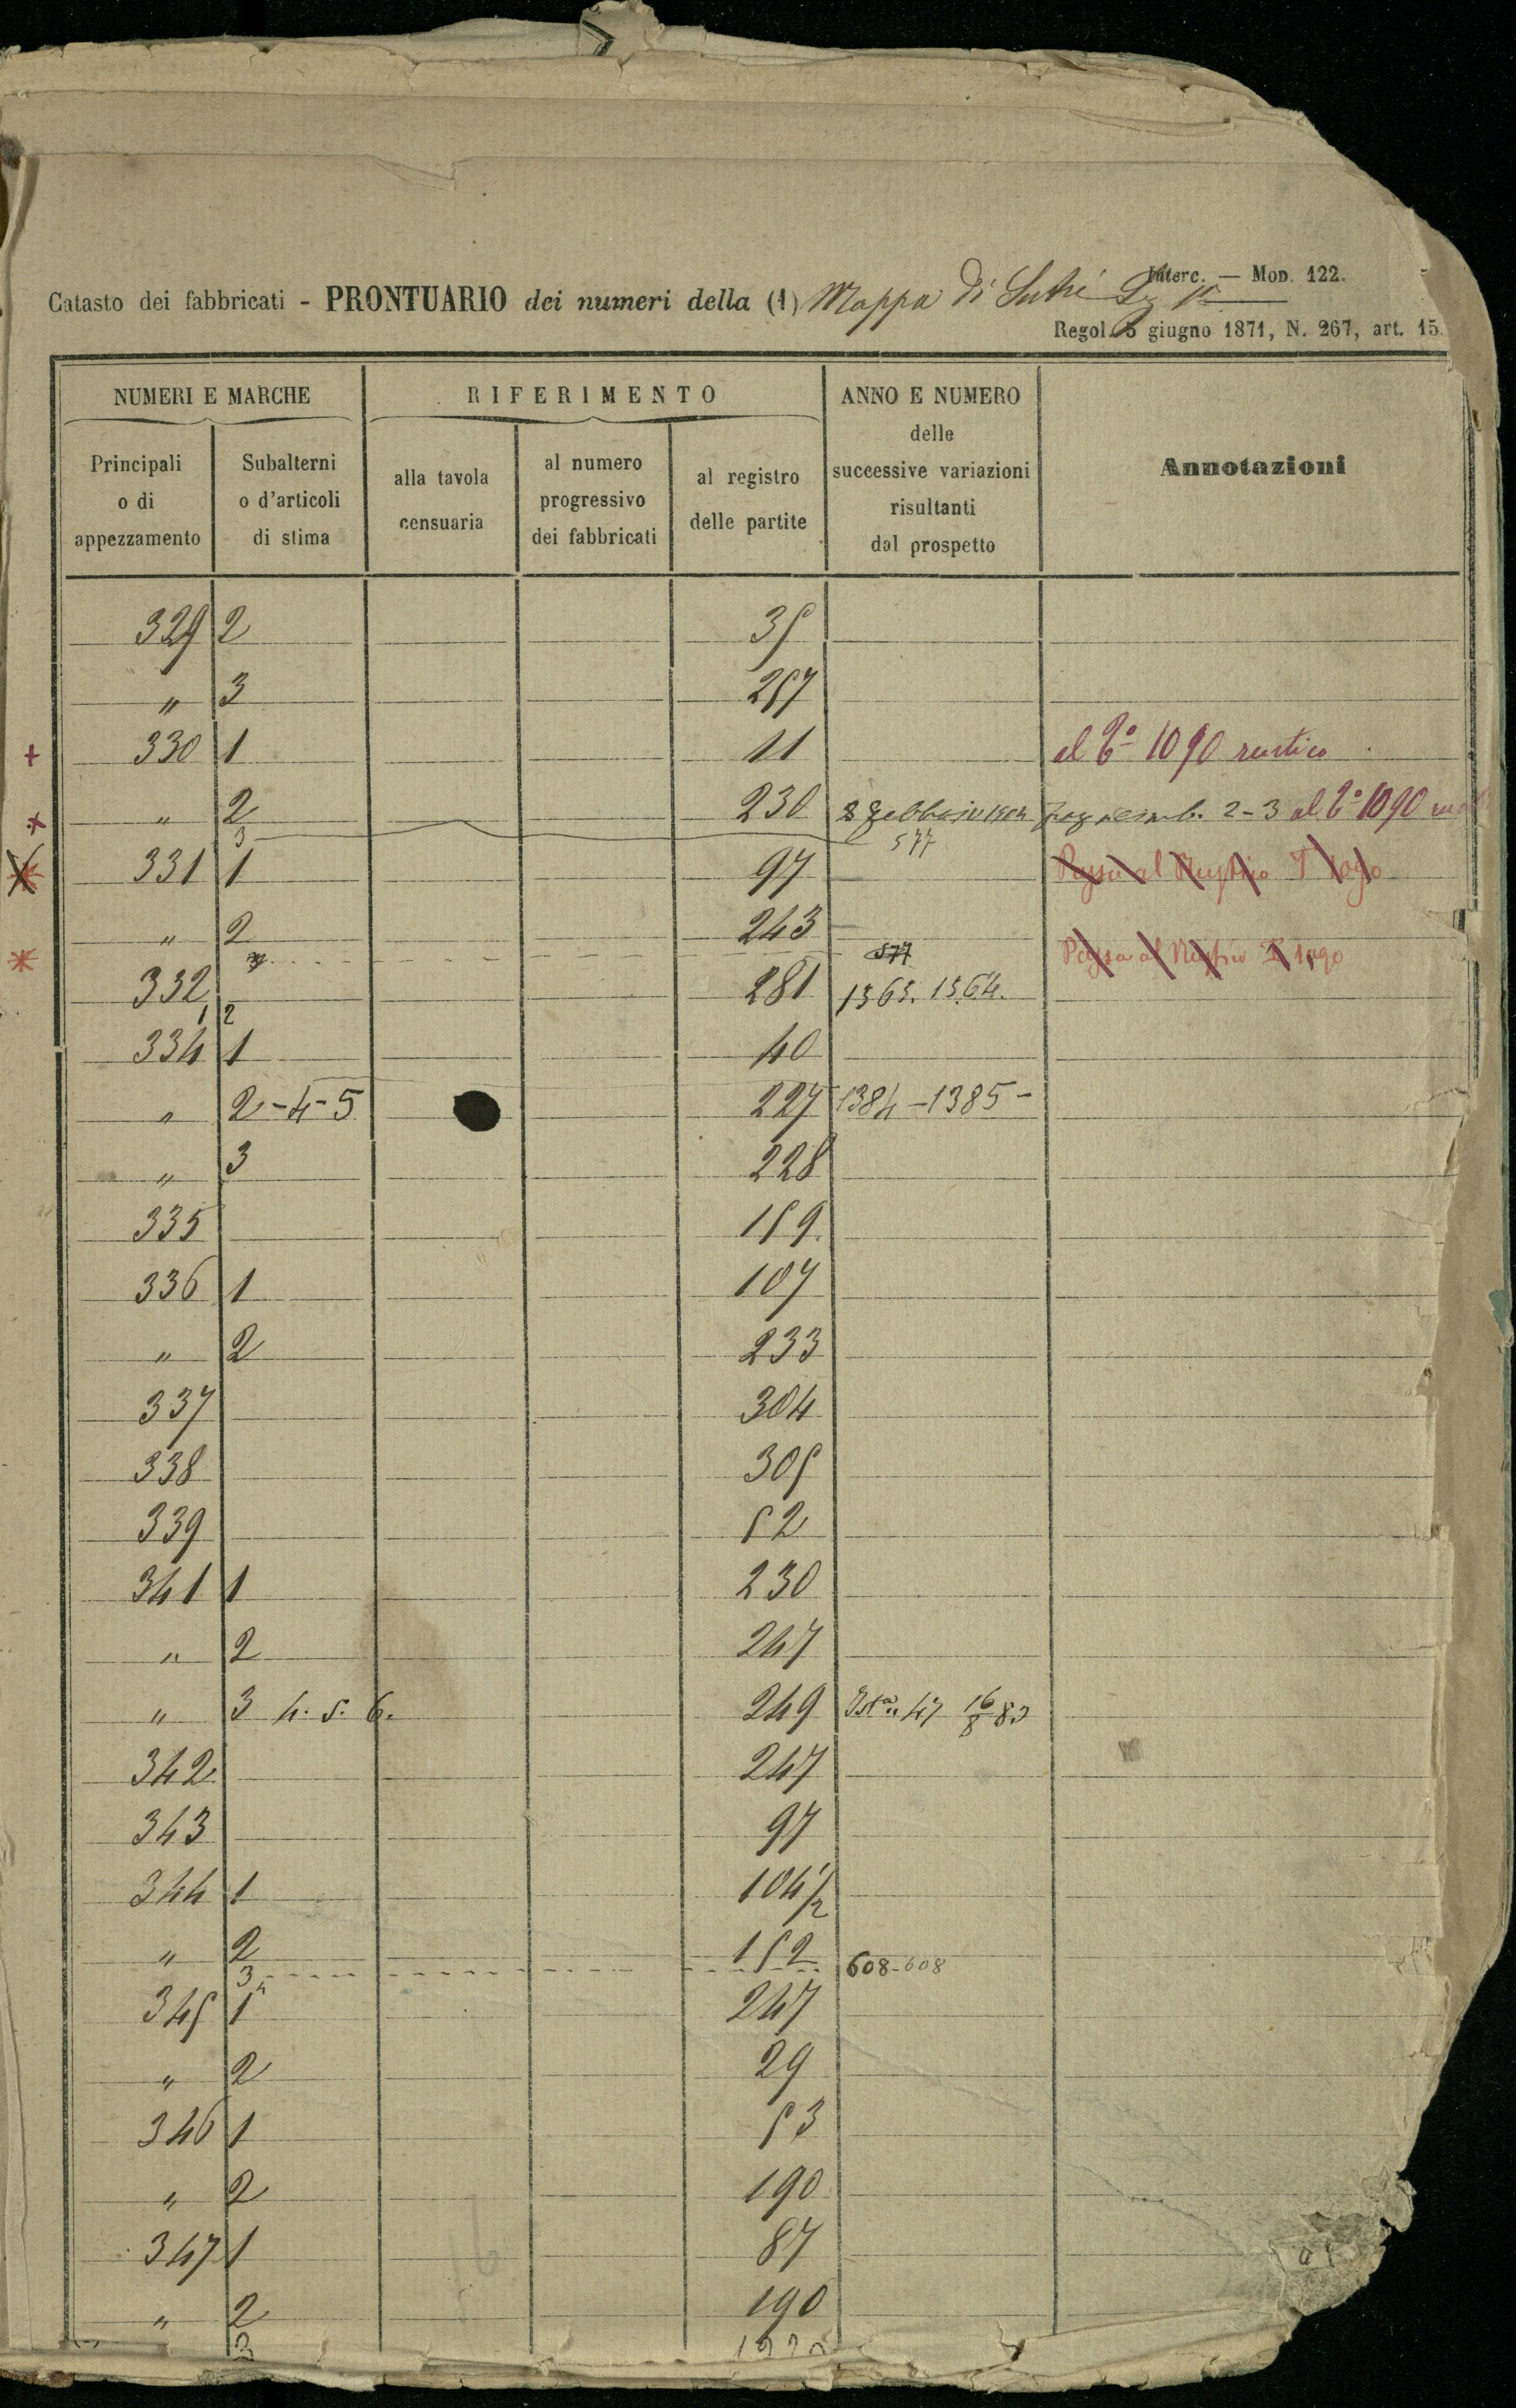 Interc. — Mod. 122.
Catasto dei fabbricati - PRONTUARIO dei numeri della (1) Mappa di Sutri
Regol. 5 giugno 1871, N. 267, art. 15.
NUMERI E MARCHE
RIFERIMENTO
ANNO E NUMERO
delle
successive variazioni
risultanti
dal prospetto
Annotazioni
Principali
o di
appezzamento
Subalterni
o d'articoli
di stima
alla tavola
censuaria
al numero
progressivo
dei fabbricati
al registro
delle partite
329 2 35
" 3 257
+ 330 1 11 al 6° 1090 rustico
+ " 2 230 8 Febbraio 2-3 al 6° 1090
3 577
331 1 97 Passa al Rustico 1090
" 2 243
577 Passa al Rustico 1090
332 281 1363. 1364.
1 2
334 1 40
" 2-4-5 227 1384-1385-
" 3 228
335 159.
336 1 107
" 2 233
337 304
338 305
339 52
341 1 230
" 2 247
" 3 4. 5. 6. 249 47 16/8 83
342 247
343 97
344 1 104 1/2
" 2 152
3 608-608
345 1 247
" 2 29
346 1 53
" 2 190
347 1 87
" 2 190
3